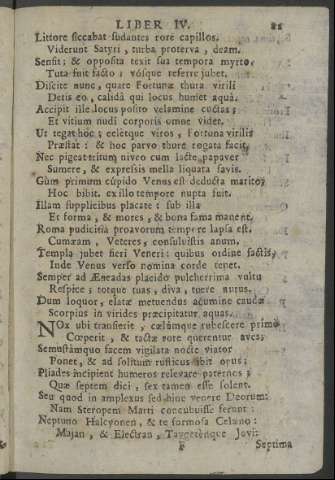 LIBER IV. 81
Littore siccabat sudantes rore capillos.
Viderunt Satyri, turba proterva, deam.
Sensit; & opposita texit sua tempora myrto,
Tuta fuit facto: vosque referre jubet.
Discite nunc, quare Fortunæ thura virili
Detis eo, calidâ qui locus humet aquâ.
Accipit ille locus posito velamine cuctas;
Et vitium nudi corporis omne videt.
Ut tegat hoc; celetque viros, Fortuna virilis
Præstat: & hoc parvo thure rogata facit.
Nec pigeat tritum niveo cum lacte papaver
Sumere, & expressis mella liquata favis.
Cùm primum cupido Venus est deducta marito;
Hoc bibit. ex illo tempore nupta fuit.
Illam supplicibus placate: sub illa
Et forma, & mores, & bona fama manent.
Roma pudicitiâ proavorum tempore lapsa est.
Cumæam, Veteres, consuluistis anum.
Templa jubet fieri Veneri: quibus ordine factis,
Inde Venus verso nomina corde tenet.
Semper ad Æneadas placido pulcherrima vultu
Respice; totque tuas, diva, tuere nurus.
Dum loquor, elatæ metuendus acumine caudæ
Scorpius in virides præcipitatur aquas.
NOx ubi transierit, cælumque rubescere primo
Cœperit, & tactæ rore querentur aves;
Semustamque facem vigilata nocte viator
Ponet, & ad solitum rusticus ibit opus;
Pliades incipient humeros relevare paternos;
Quæ septem dici, sex tamen esse solent.
Seu quod in amplexus sed hinc venere Deorum:
Nam Steropem Marti concubuisse ferunt:
Neptuno Halcyonen, & te formosa Celæno:
Majan, & Electran, Taygetenque Jovi:
F Septima